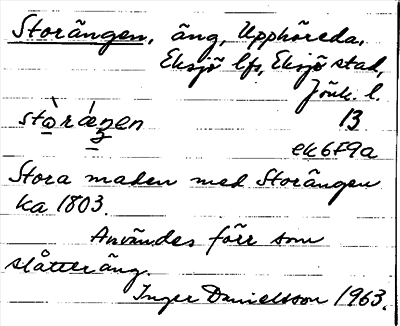 Storängen, äng, Upphöreda,
Eksjö lfs, Eksjö stad,
Jönk. l.
stò̱ráŋen 13
ek6f9a
Stora maden med Storängen
ka 1803.
Användes förr som
slåtteräng.
Inger Danielsson 1963.